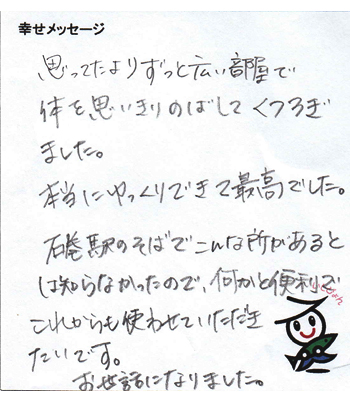 幸せメッセージ
思ってたよりずっと広い部屋で
体を思いきりのばしてくつろぎ
ました。
本当にゆっくりできて最高でした。
石巻駅のそばでこんな所があると
は知らなかったので、何かと便利で
これからも使わせていただき
たいです。
お世話になりました。